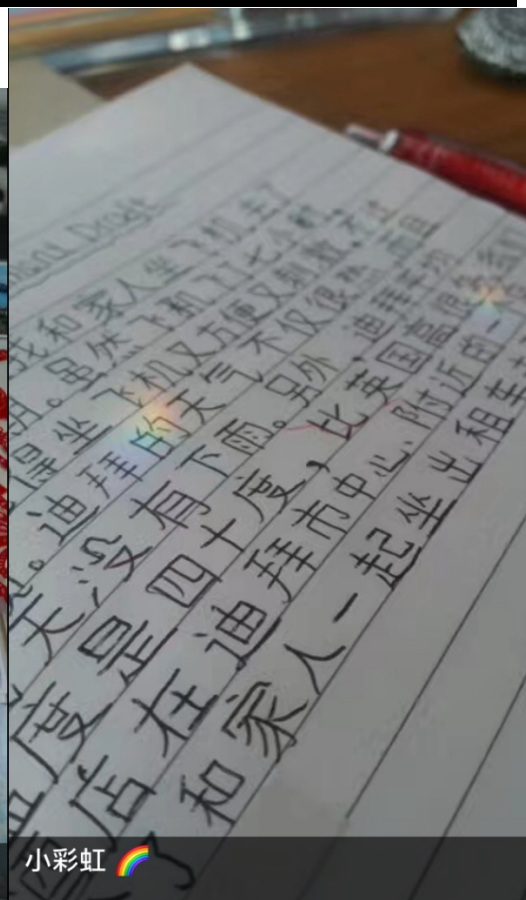 Draft
我和家人坐飞机去了
。虽然飞机飞了七小时，不过
得坐飞机又方便又刺激。而且
。迪拜的天气不仅很热
天没有下雨。另外，迪拜平均
温度是四十度，比英国高很多
店在迪拜市中心附近的一
了
和家人一起坐出租车
小彩虹 🌈